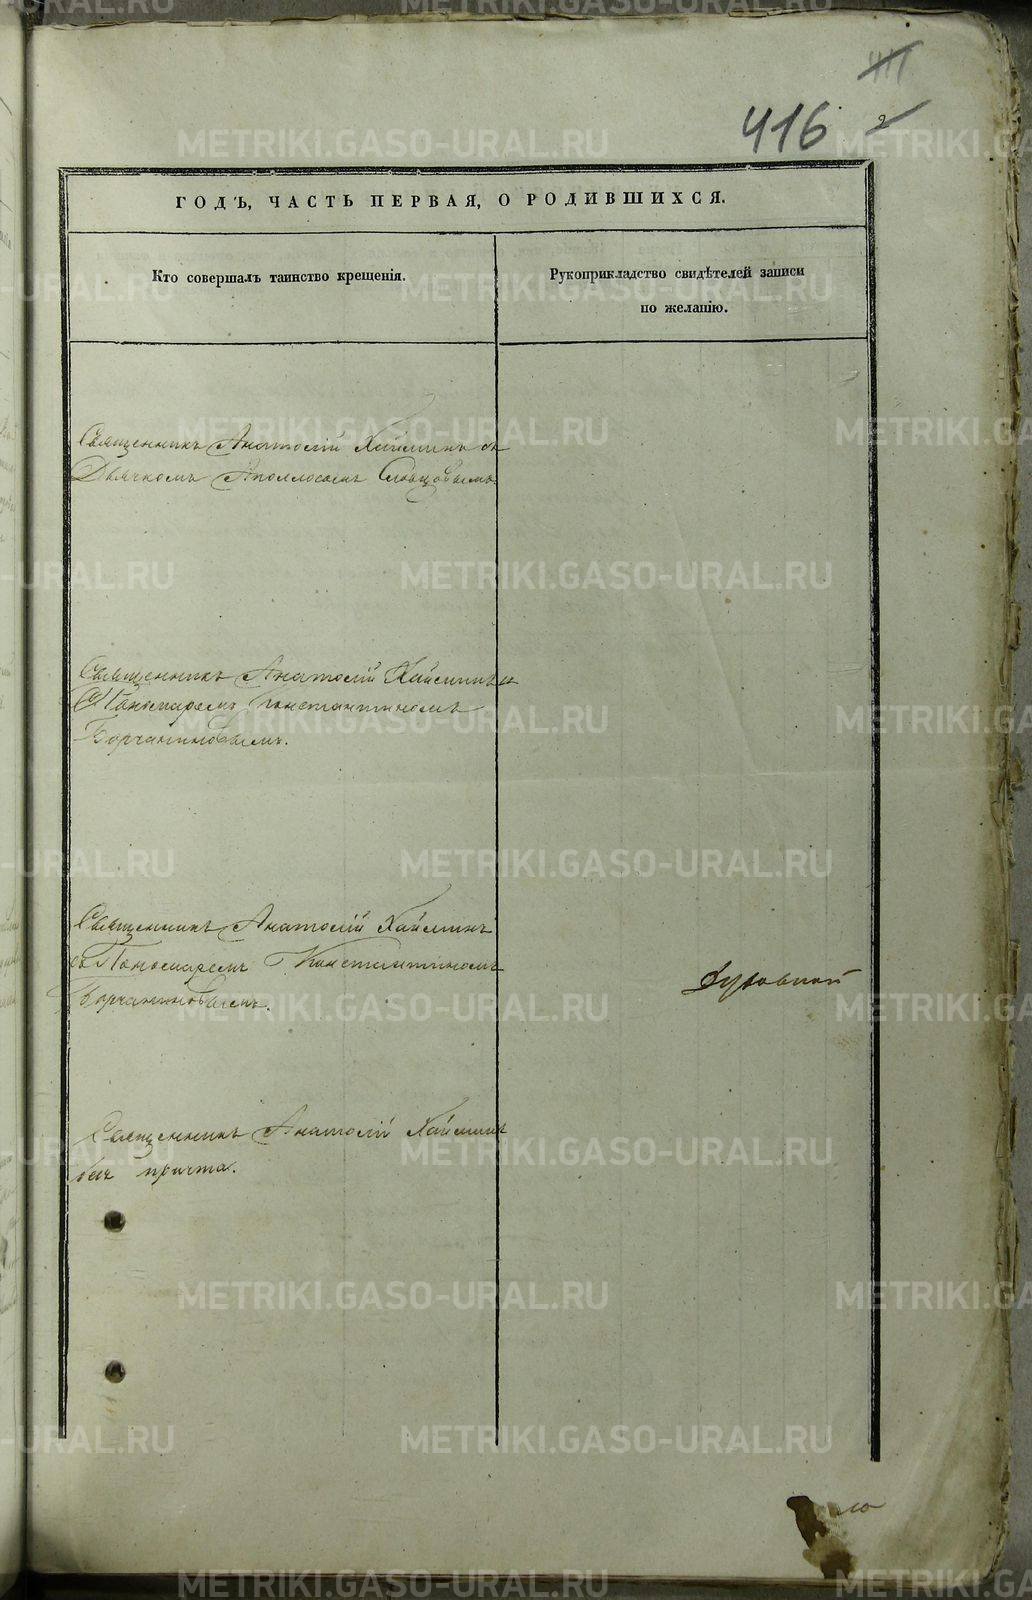 416
2
ГОДЪ, ЧАСТЬ ПЕРВАЯ, О РОДИВШИХСЯ.
Кто совершалъ таинство крещенія.
Рукоприкладство свидѣтелей записи
по желанію.
Священникъ Анатолій Хайминъ съ
Дьячкомъ Аполлосомъ Словцовымъ
Священникъ Анатолій Хайминъ съ
Пономаремъ Константиномъ
Борчаниновымъ.
Священникъ Анатолій Хайминъ
съ Пономаремъ Константиномъ
Борчаниновымъ.
Духовной
Священникъ Анатолій Хайминъ
безъ причта.
METRIKI.GASO-URAL.RU